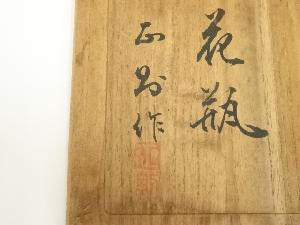 花瓶
正則作